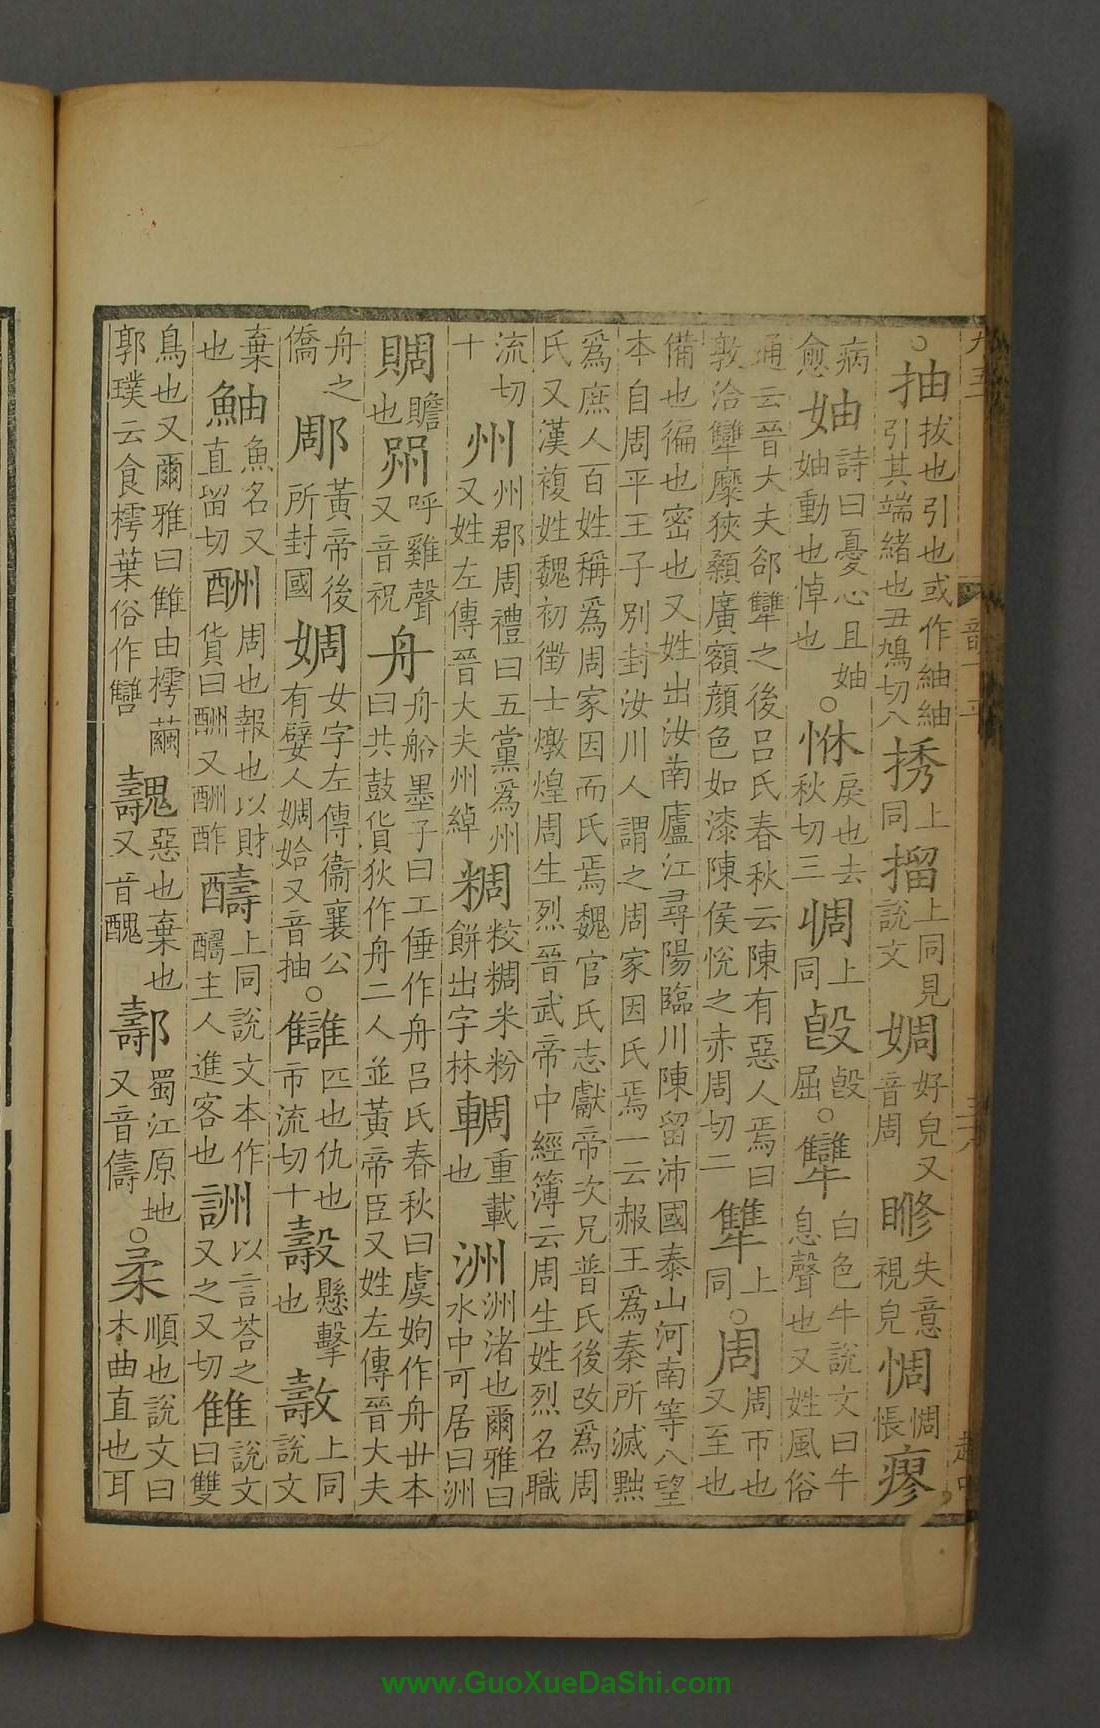 ○抽拔也引也或作紬紬引其端緒也丑鳩切八㨨上同㩅上同見說文婤好皃又音周䏔失意視皃惆惆悵瘳
病愈妯詩曰憂心且妯妯動也悼也○惆戾也去秋切三惆上同㱿㱿屈○犨白色牛說文曰牛息聲也又姓風俗
通云晉大夫郤犨之後呂氏春秋云陳有惡人焉曰敦洽犨糜狹顙廣額顏色如漆陳侯悅之赤周切二犫上同○周周帀也又至也
備也徧也密也又姓出汝南廬江尋陽臨川陳留沛國泰山河南等八望本自周平王子別封汝川人謂之周家因氏焉一云赧王爲秦所滅黜
爲庶人百姓稱爲周家因而氏焉魏官氏志獻帝次兄普氏後改爲周氏又漢複姓魏初徵士燉煌周生烈晉武帝中經簿云周生姓烈名職
流切十州州郡周禮曰五黨爲州又姓左傳晉大夫州綽粷粉粷米粉餅出字林輖重載也洲洲渚也爾雅曰水中可居曰洲
賙贍也喌呼雞聲又音祝舟舟船墨子曰工倕作舟呂氏春秋曰虞姁作舟世本曰共鼓貨狄作舟二人並黃帝臣又姓左傳晉大夫
舟之僑郮黃帝後所封國婤女字左傳衞襄公有嬖人婤姶又音抽○讎匹也仇也市流切十㲄懸擊也𢾭上同說文
棄也鮋魚名又直留切酬周也報也以財貨曰酬又酬酢醻上同說文本作醻主人進客也詶以言荅之又之又切雔說文曰雙
鳥也又爾雅曰雔由樗繭郭璞云食樗葉俗作犫魗惡也棄也又音醜𨞪蜀江原地又音儔○柔順也說文曰木曲直也耳
www.GuoXueDaShi.com